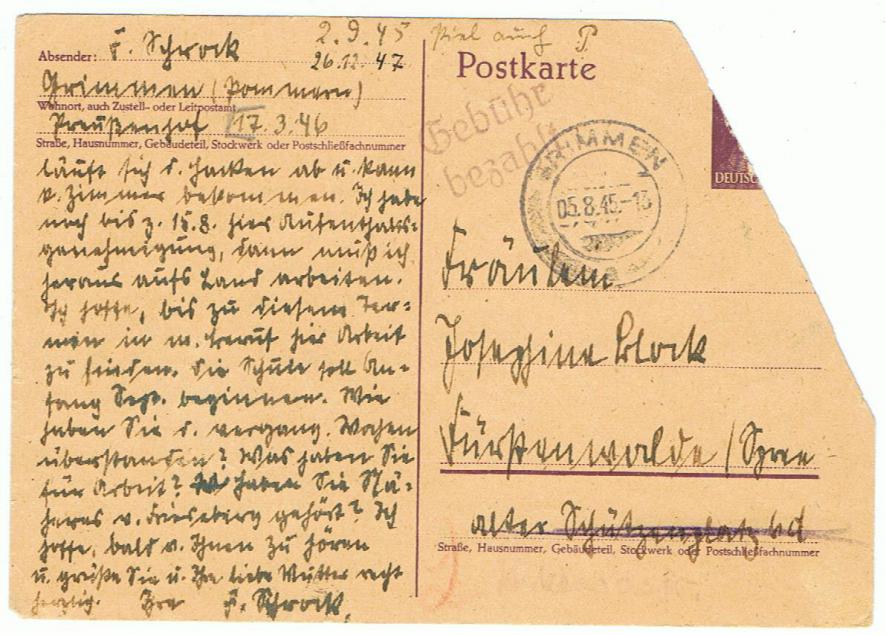 Absender: F. Schrock
2.9.45
26.12.47
Grimmen (Pommern)
Wohnort, auch Zustell- oder Leitpostamt
Preußenhof 17.3.46
Straße, Hausnummer, Gebäudeteil, Stockwerk oder Postschließfachnummer
läuft sich d. Hacken ab u. kann
k. Zimmer bekommen. Ich habe
noch bis z. 15.8. hier Aufenthalts-
genehmigung, dann muß ich
heraus aufs Land arbeiten.
Ich hoffe, bis zu diesem Ter-
min in m. Beruf hier Arbeit
zu finden. Die Schule soll An-
fang Sept. beginnen. Wie
haben Sie d. vergang. Wochen
überstanden? Was haben Sie
für Arbeit? Haben Sie Nä-
heres v. gehört? Ich
hoffe, bald v. Ihnen zu hören
u. grüße Sie u. Ihre liebe Mutter recht
herzlich. Ihre F. Schrock.
auch P
Postkarte
Gebühr
bezahlt
GRIMMEN
05.8.45.-13
DEUTSC
Fräulein
Josephine Block
Fürstenwalde/Spree
alter Schützenplatz 6d
Straße, Hausnummer, Gebäudeteil, Stockwerk oder Postschließfachnummer